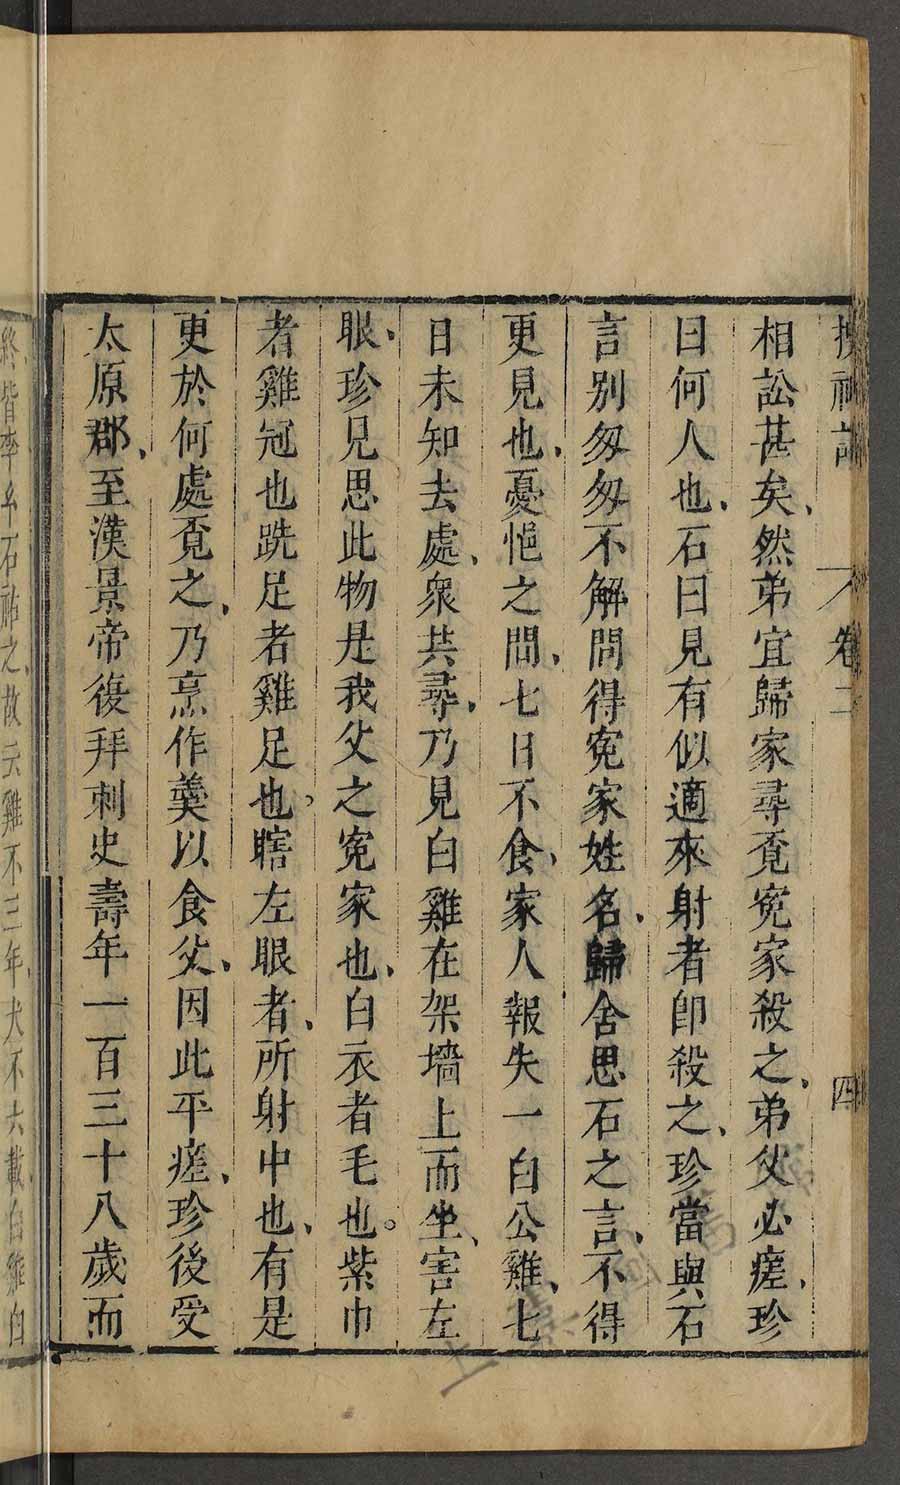 搜神記 卷二 四
相訟甚矣、然弟宜歸家尋覓寃家殺之、弟父必瘥、珍
曰何人也、石曰見有似適來射者卽殺之、珍當與石
言別匆匆不解問得寃家姓名、歸舍思石之言、不得
更見也、憂悒之間、七日不食、家人報失一白公雞、七
日未知去處、衆共尋、乃見白雞在架墻上而坐、害左
眼、珍見思此物是我父之寃家也、白衣者毛也。紫巾
者雞冠也跣足者雞足也、瞎左眼者、所射中也、有是
更於何處覓之、乃烹作羹以食父、因此平瘥、珍後受
太原郡、至漢景帝復拜刺史壽年一百三十八歲而
終皆李玄石祐之、故云雞不三年、犬不六載、白雞白